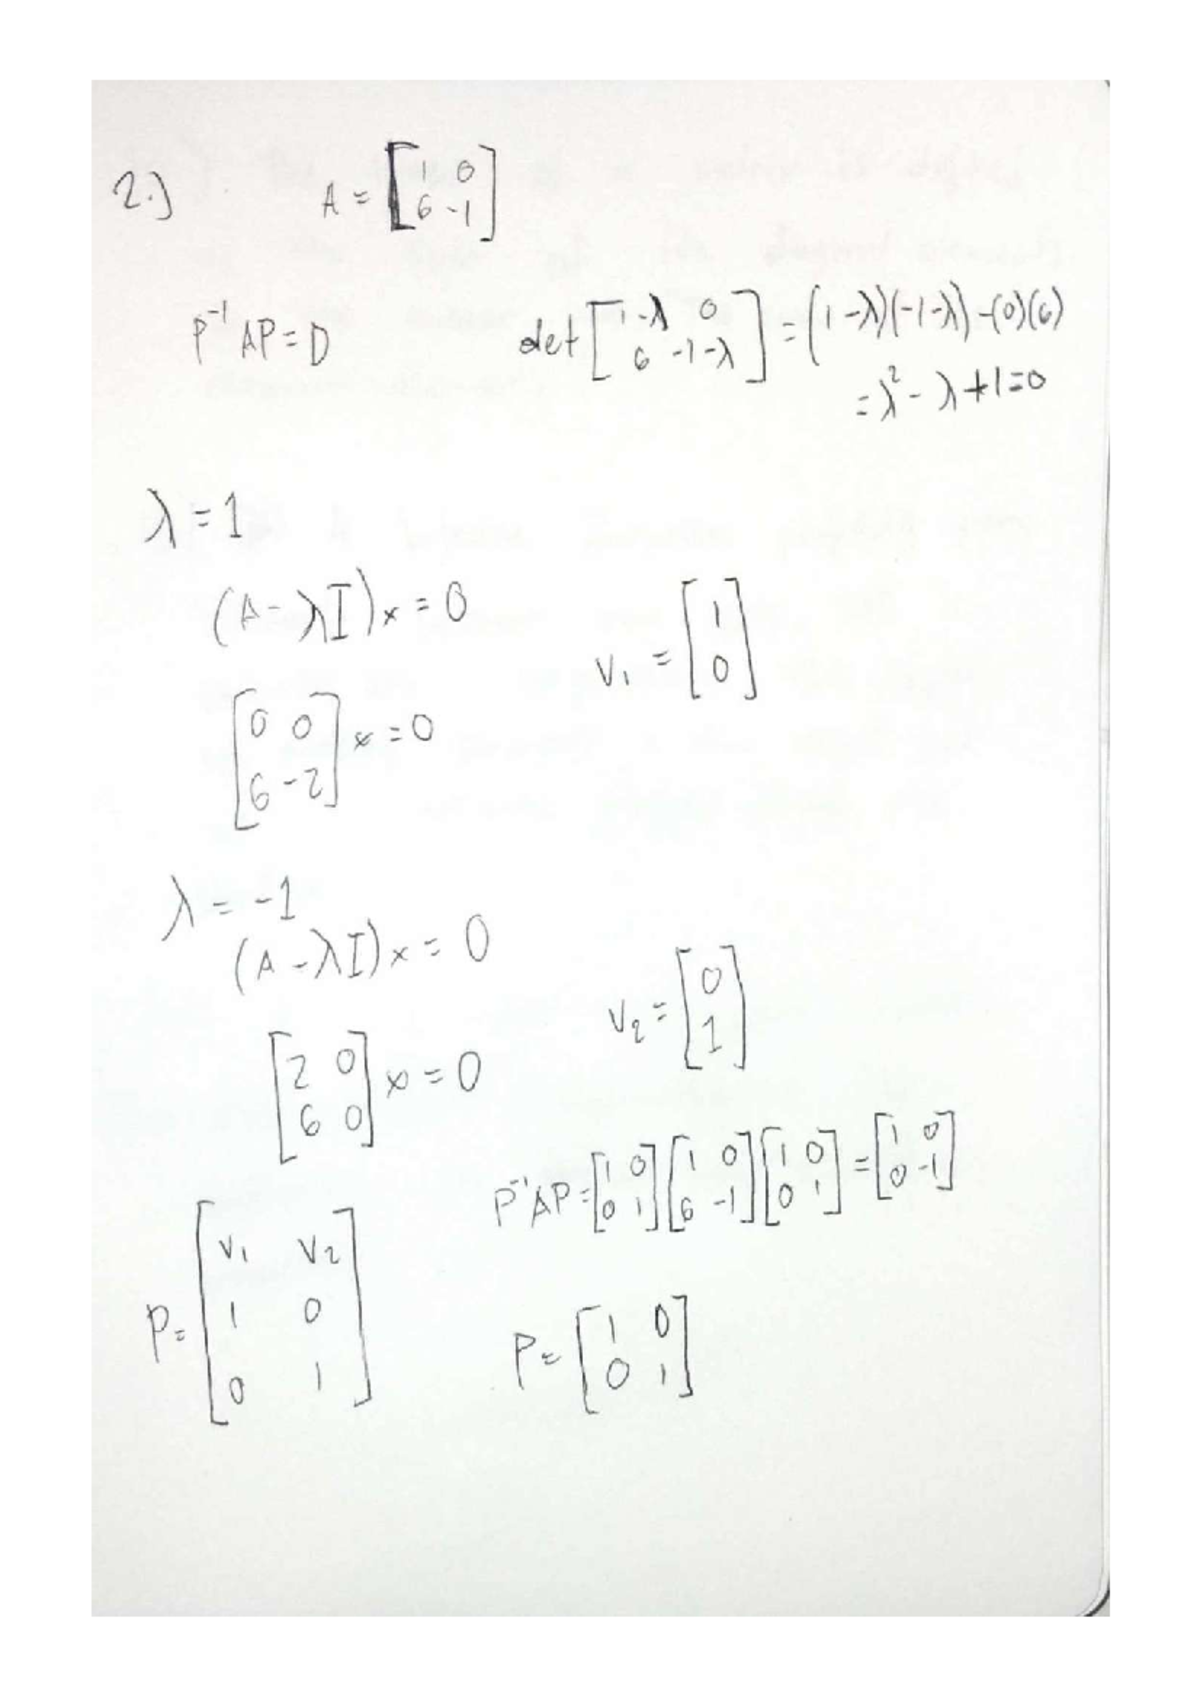 2.) A = [1 0; 6 -1]
P⁻¹AP = D
det[1-λ 0; 6 -1-λ] = (1-λ)(-1-λ)-(0)(6)
= λ² - λ + 1 = 0
λ = 1
(A-λI)x = 0
V₁ = [1; 0]
[0 0; 6 -2]x = 0
λ = -1
(A-λI)x = 0
V₂ = [0; 1]
[2 0; 6 0]x = 0
P⁻¹AP = [1 0; 0 1][1 0; 6 -1][1 0; 0 1] = [1 0; 0 -1]
P = [V₁ V₂; 1 0; 0 1]
P = [1 0; 0 1]